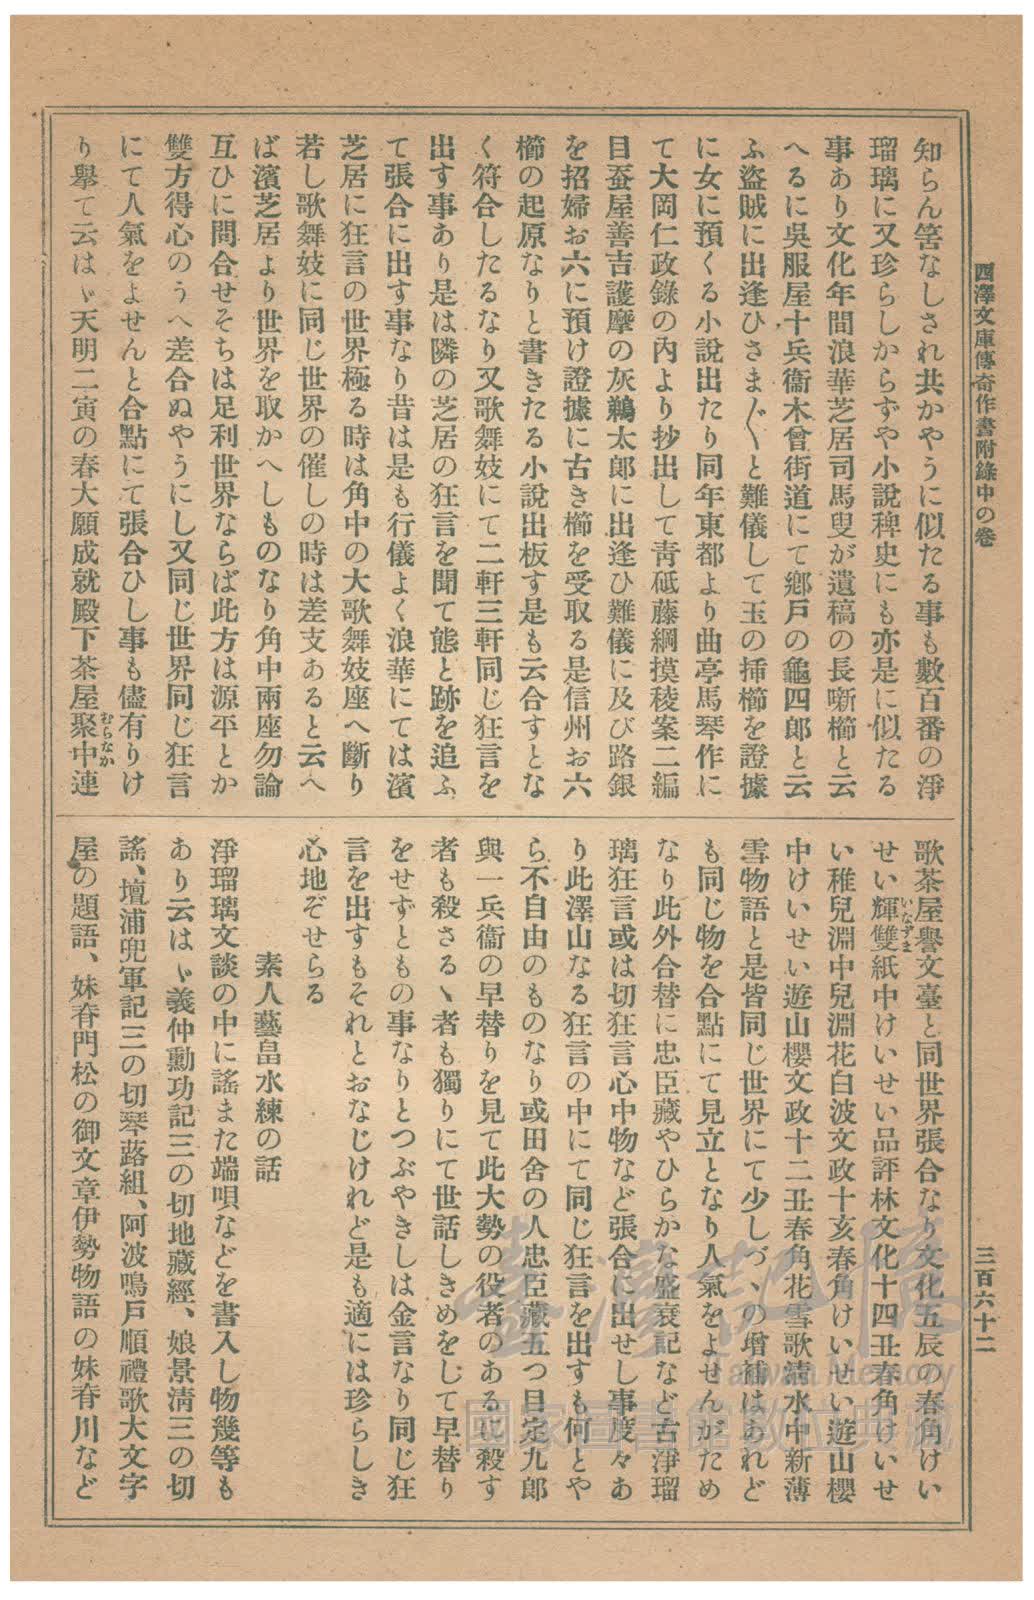 西澤文庫傳奇作書附錄中の卷
三百六十二
知らん筈なしされ共かやうに似たる事も數百番の淨
瑠璃に又珍らしからずや小說稗史にも亦是に似たる
事あり文化年間浪華芝居司馬叟が遺稿の長噺櫛と云
へるに吳服屋十兵衞木曾街道にて鄕戶の龜四郎と云
ふ盜賊に出逢ひさま〲と難儀して玉の揷櫛を證據
に女に預くる小說出たり同年東都より曲亭馬琴作に
て大岡仁政錄の內より抄出して靑砥藤綱摸稜案二編
目蚕屋善吉護摩の灰鵜太郞に出逢ひ難儀に及び路銀
を招婦お六に預け證據に古き櫛を受取る是信州お六
櫛の起原なりと書きたる小說出板す是も云合すとな
く符合したるなり又歌舞妓にて二軒三軒同じ狂言を
出す事あり是は隣の芝居の狂言を聞て態と跡を追ふ
て張合に出す事なり昔は是も行儀よく浪華にては濱
芝居に狂言の世界極る時は角中の大歌舞妓座へ斷り
若し歌舞妓に同じ世界の催しの時は差支あると云へ
ば濱芝居より世界を取かへしものなり角中兩座勿論
互ひに問合せそちは足利世界ならば此方は源平とか
雙方得心のうへ差合ぬやうにし又同じ世界同じ狂言
にて人氣をよせんと合點にて張合ひし事も儘有りけ
り擧て云はゞ天明二寅の春大願成就殿下茶屋聚中連
むらなか
歌茶屋譽文臺と同世界張合なり文化五辰の春角けい
せい輝雙紙中けいせい品評林文化十四丑春角けいせ
いなずま
い稚兒淵中兒淵花白波文政十亥春角けいせい遊山櫻
中けいせい遊山櫻文政十二丑春角花雪歌淸水中新薄
雪物語と是皆同じ世界にて少しづゝの增補はあれど
も同じ物を合點にて見立となり人氣をよせんがため
なり此外合替に忠臣藏やひらかな盛衰記など古淨瑠
璃狂言或は切狂言心中物など張合に出せし事度々あ
り此澤山なる狂言の中にて同じ狂言を出すも何とや
ら不自由のものなり或田舍の人忠臣藏五つ目定九郞
與一兵衞の早替りを見て此大勢の役者のあるに殺す
者も殺さるゝ者も獨りにて世話しきめをして早替り
をせずともの事なりとつぶやきしは金言なり同じ狂
言を出すもそれとおなじけれど是も適には珍らしき
心地ぞせらる
素人藝畠水練の話
淨瑠璃文談の中に謠また端唄などを書入し物幾等も
あり云はゞ義仲勳功記三の切地藏經、娘景淸三の切
謠、壇浦兜軍記三の切琴蕗組、阿波鳴戶順禮歌大文字
屋の題語、妹脊門松の御文章伊勢物語の妹脊川など
臺灣記憶
Taiwan Memory
國家圖書館數位典藏